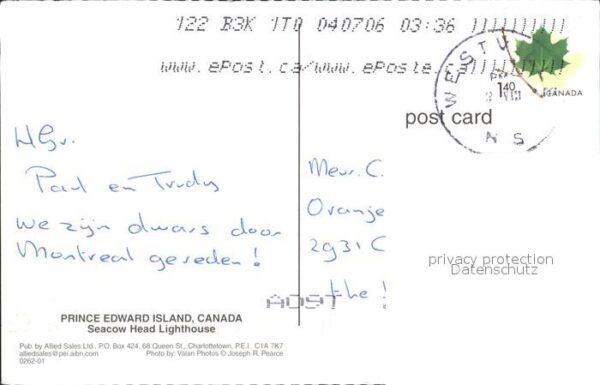 122 B3K 1T0 040706 03:36
www.ePost.ca/www.ePoste.ca
WESTV
NS
1.40
CANADA
post card
HGr.
Paul en Trudy
We zijn dwars door
Montreal gereden!
Mevr. C.
Oranje
2931 C
the !
privacy protection
Datenschutz
A091
PRINCE EDWARD ISLAND, CANADA
Seacow Head Lighthouse
Pub. by Allied Sales Ltd., P.O. Box 424, 68 Queen St., Charlottetown, P.E.I. C1A 7K7
alliedsales@pei.aibn.com Photo by: Valan Photos © Joseph R. Pearce
0262-01